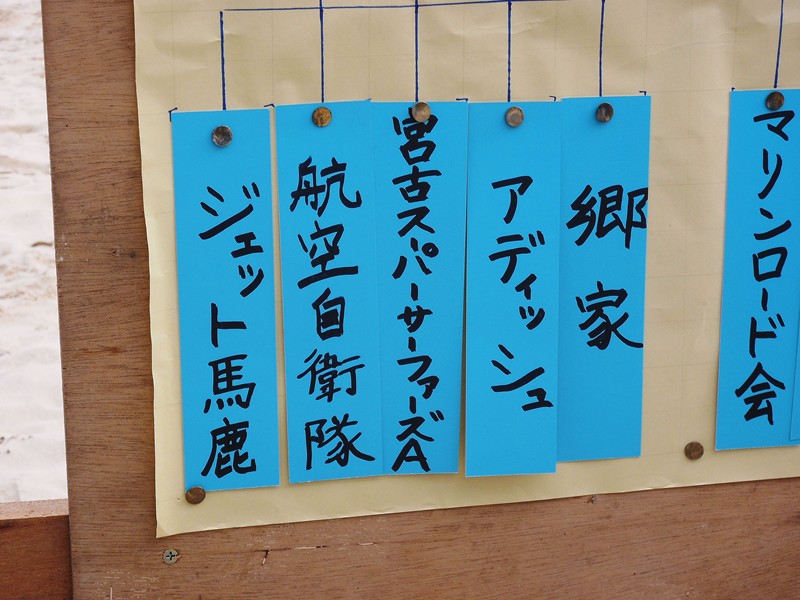 マリンロード会
郷家
アディッシュ
宮古スーパーサーファーズA
航空自衛隊
ジェット馬鹿